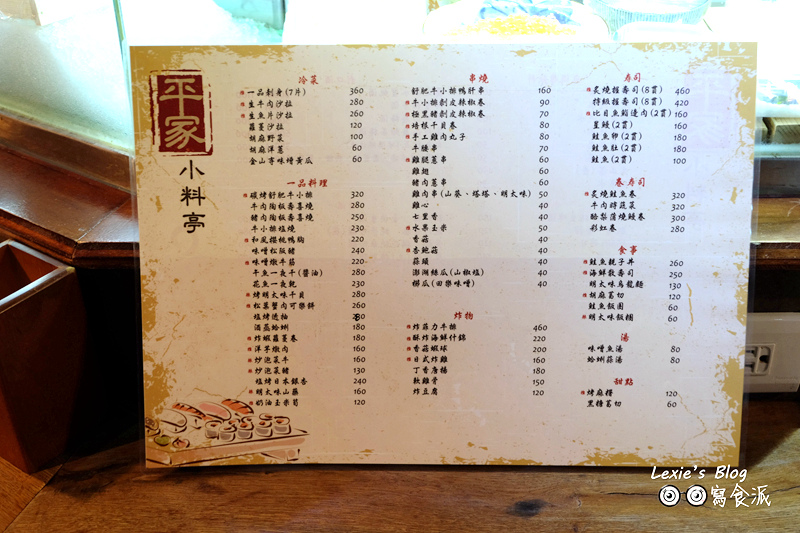 平家
小料亭
冷菜
一品刺身(7片) 360
生牛肉沙拉 280
生魚片沙拉 260
蘿蔓沙拉 120
胡麻野菜 100
胡麻洋蔥 60
金山亭味噌黃瓜 60
一品料理
碳烤舒肥牛小排 320
牛肉陶板壽喜燒 280
豬肉陶板壽喜燒 250
牛小排塩燒 230
和風櫻桃鴨胸 220
味噌松阪豬 240
味噌燉牛筋 220
牛魚一夜干(醬油) 280
花魚一夜乾 230
烤明太味干貝 280
松葉蟹肉可樂餅 260
塩烤透抽
酒蒸蛤蜊 180
炸蝦蘿蔓卷 180
洋芋燉肉 160
炒泡菜牛 160
炒泡菜豬 130
塩烤日本銀杏 240
明太味山藥 160
奶油玉米筍 120
串燒
舒肥牛小排鴨肝串 160
牛小排剝皮辣椒卷 90
極黑豬剝皮辣椒卷 70
培根干貝卷 80
手工雞肉丸子 80
牛腰串 70
雞腿蔥串 60
雞翅 60
豬肉蔥串 60
雞肉串(山葵、塔塔、明太味) 50
雞心 40
七里香 40
水果玉米 50
香菇 40
杏鮑菇 40
蒜頭 40
澎湖絲瓜(山椒塩) 40
櫛瓜(田樂味噌) 40
炸物
炸菲力牛排 460
酥炸海鮮什錦 220
香菇蝦球 200
日式炸雞 160
丁香唐揚 180
軟雞骨 150
炸豆腐 120
壽司
炙燒握壽司(8貫) 460
特級握壽司(8貫) 420
比目魚鰭邊肉(2貫) 160
星鰻(2貫) 160
鮭魚卵(2貫) 180
鮭魚肚(2貫) 180
鮭魚(2貫) 100
卷壽司
炙燒鮭魚卷 320
牛肉時蔬菜 320
酪梨蒲燒鰻卷 300
彩虹卷 280
食事
鮭魚親子丼 260
海鮮散壽司 250
明太味烏龍麵 130
胡麻葛切 120
鮭魚飯團 60
明太味飯糰 60
湯
味噌魚湯 80
蛤蜊菇湯 80
甜點
烤麻糬 120
黑糖葛切 60
Lexie's Blog
寫食派